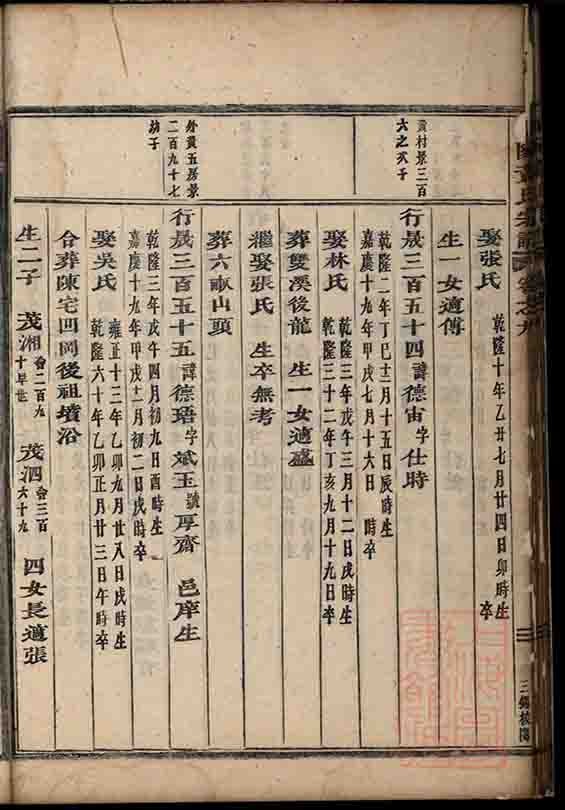 娶張氏 乾隆十年乙丑七月廿四日卯時生 卒
生一女適傅
黃村景三百
六之次子
行晟三百五十四 諱德宙 字仕時
乾隆二年丁巳十二月十五日辰時生
嘉慶十九年甲戌七月十六日 時卒
娶林氏 乾隆三年戊午三月十二日戌時生
乾隆三十二年丁亥九月十九日卒
葬雙溪後龍 生一女適盛
繼娶張氏 生卒無考
葬六畝山頭
外黃五房景
二百九十七
幼子
行晟三百五十五 諱德珸 字斌玉 號厚齋 邑庠生
乾隆三年戊午四月初九日酉時生
嘉慶十九年甲戌十一月初二日戌時卒
娶吳氏 雍正十三年乙卯九月廿八日戌時生
乾隆六十年乙卯正月廿三日午時卒
合葬陳宅凹岡後祖墳沿
生二子 茂湘 會二百九十早世 茂泗 會三百六十九 四女長適張